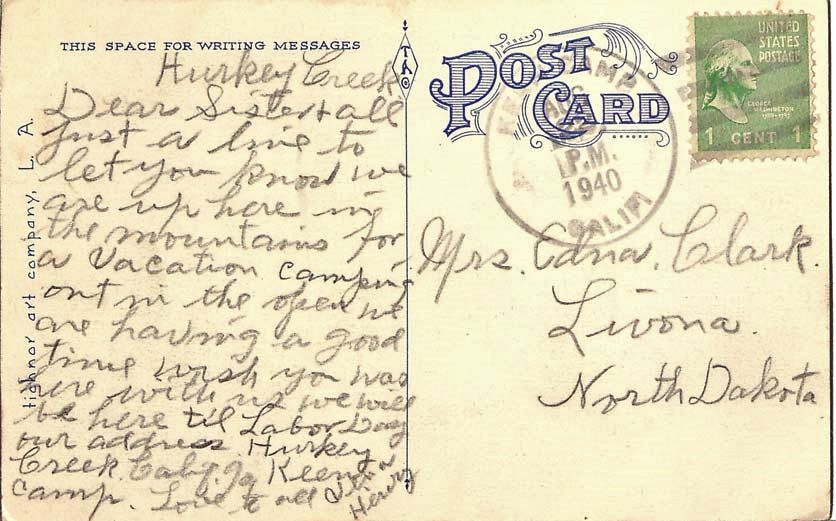 THIS SPACE FOR WRITING MESSAGES
Hurkey Creek
Dear Sister & all
Just a line to
let you know we
are up here in
the mountains for
a Vacation camping
out in the open we
are having a good
time wish you was
here with us we will
be here til Labor Day
our address Hurkey
Creek. Calif. Keen
Camp. Love to all
Henry
tichnor art company, L. A.
TAC
POST
CARD
CAMP
AUG
P.M.
1940
CALIF
UNITED
STATES
POSTAGE
GEORGE
WASHINGTON
1789-1797
1 CENT 1
Mrs. Edna. Clark.
Livona.
North Dakota